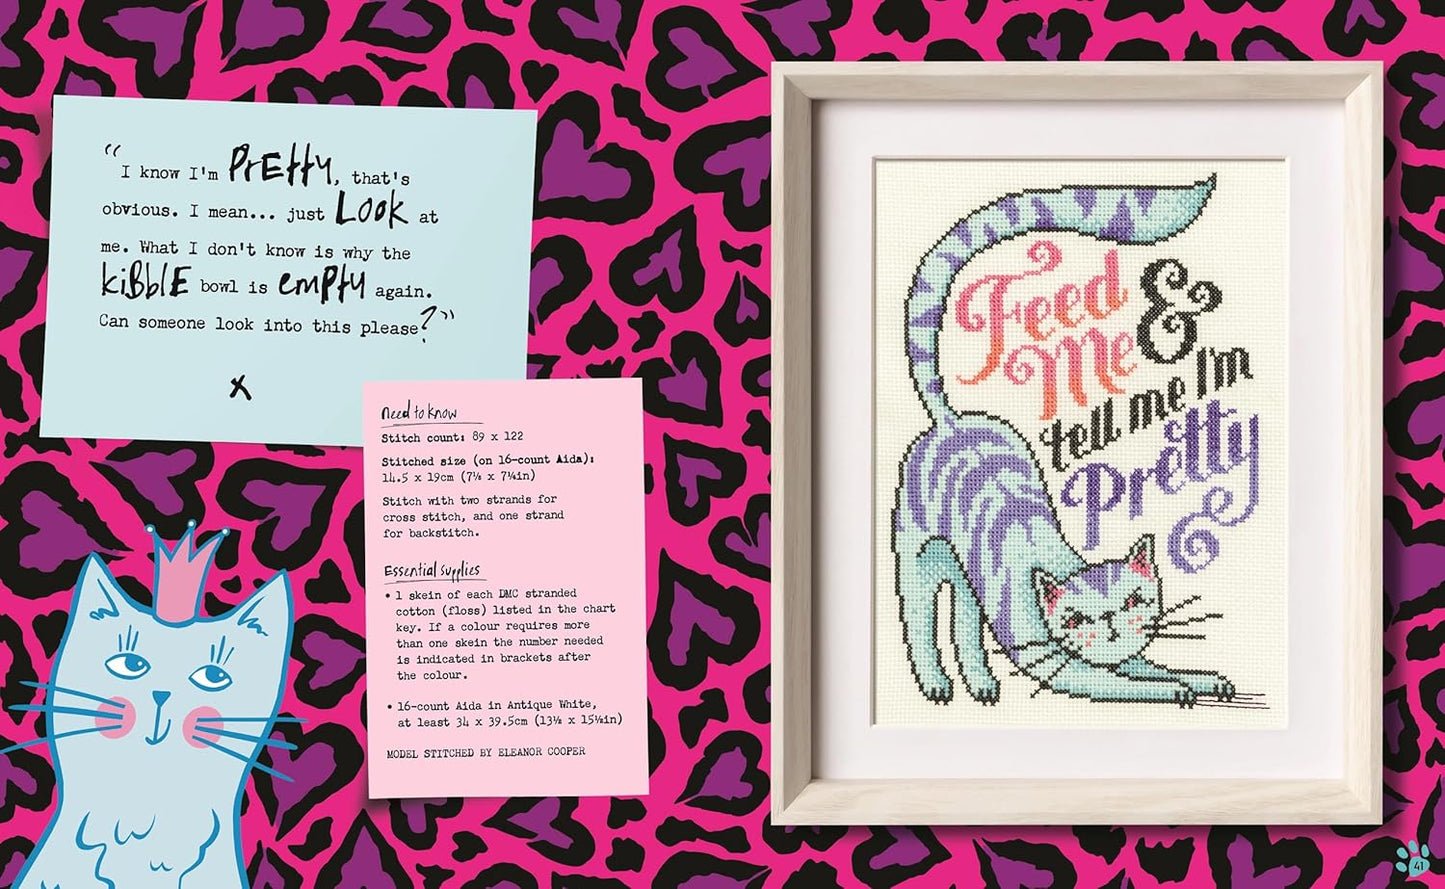 “I know I'm PrEttY, that's
obvious. I mean... just LOOK at
me. What I don't know is why the
kiBBlE bowl is EmPtY again.
Can someone look into this please?”
x
need to know
Stitch count: 89 x 122
Stitched size (on 16-count Aida):
Stitch with two strands for
cross stitch, and one strand
for backstitch.
Essential supplies
• 1 skein of each DMC stranded
cotton (floss) listed in the chart
key. If a colour requires more
than one skein the number needed
is indicated in brackets after
the colour.
• 16-count Aida in Antique White,
at least 34 x 39.5cm
MODEL STITCHED BY ELEANOR COOPER
Feed
Me &
tell me I'm
Pretty
41